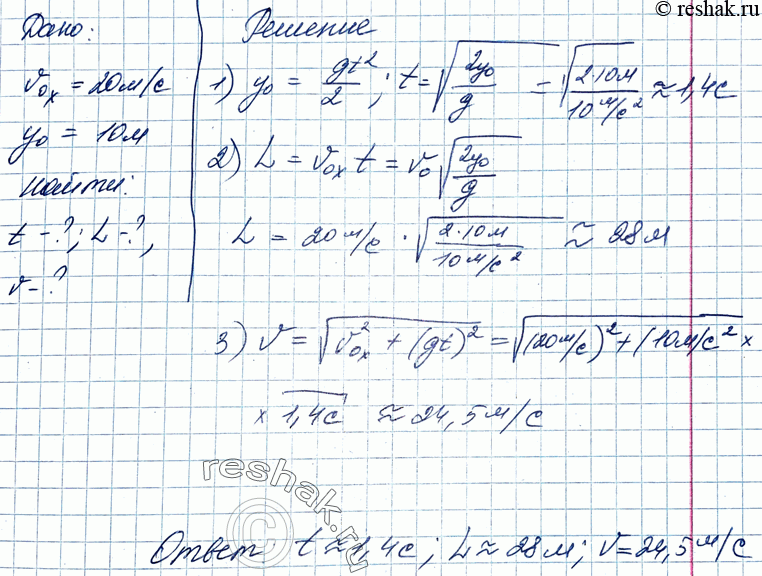 © reshak.ru
Дано:
v₀ₓ = 20 м/с
y₀ = 10 м
найти:
t - ?; L - ?,
v - ?
Решение
1) y₀ = gt²/2; t = √(2y₀/g) = √(2·10м/10 м/с²) ≈ 1,4с
2) L = v₀ₓ t = v₀ √(2y₀/g)
L = 20 м/с · √(2·10м/10 м/с²) ≈ 28 м
3) v = √(v₀ₓ² + (gt)²) = √((20 м/с)² + (10 м/с² ×
× 1,4с ≈ 24,5 м/с
reshak.ru
©
Ответ t ≈ 1,4с; L ≈ 28 м; v = 24,5 м/с